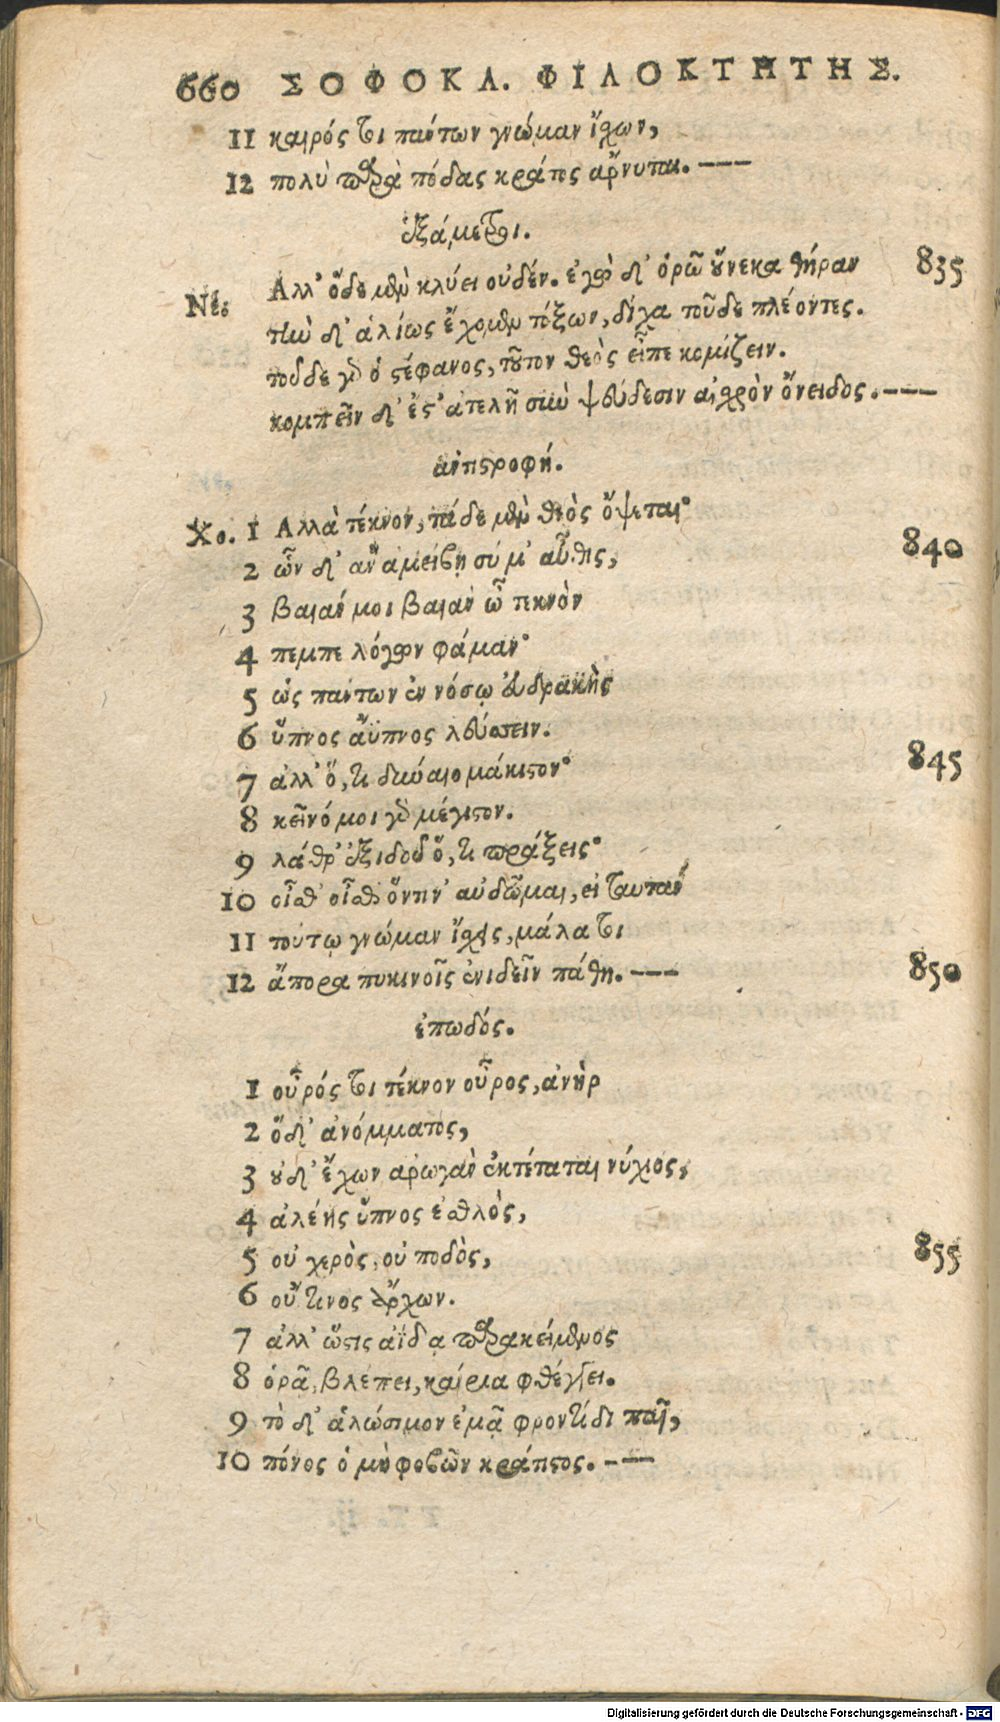 660 ΣΟΦΟΚΛ. ΦΙΛΟΚΤΗΤΗΣ.
11 καιρός τοι πάντων γνώμαν ἴχων,
12 πολὺ παρὰ πόδας κράτος ἄρνυται. ---
ἑξάμετροι.
Νέ. Αλλ' ὅδε μὲν κλύει οὐδέν. ἐγὼ δ' ὁρῶ οὕνεκα θήραν 835
τὴν δ' ἁλίως ἔχομεν τόξων, δίχα τοῦδε πλέοντες.
τοῦδε γὰρ ὁ στέφανος, τοῦτον θεὸς εἶπε κομίζειν.
κομπεῖν δ' ἔστ' ἀτελῆ σὺν ψεύδεσιν αἰσχρὸν ὄνειδος. ---
ἀντιστροφή.
Χο. 1 Αλλὰ τέκνον, τάδε μὲν θεὸς ὄψεται·
2 ὧν δ' ἂν ἀμείβῃ σύ μ' αὖθις, 840
3 βαιάν μοι βαιὰν ὦ τεκνὸν
4 πεμπε λόγων φάμαν·
5 ὡς πάντων ἐν νόσῳ εὐδρακὴς
6 ὕπνος ἄϋπνος λεύσσειν.
7 ἀλλ' ὅ, τι δύναιο μάκιστον· 845
8 κεῖνό μοι γὰρ μέγιστον.
9 λάθρ' ἐξιδοῦ ὅ, τι πράξεις·
10 οἶσθ' οἶσθ' ὅντιν' αὐδῶμαι, εἰ ταυτὰν
11 τούτῳ γνώμαν ἴσχεις, μάλα τοι
12 ἄπορα πυκινοῖς ἐνιδεῖν πάθη. --- 850
ἐπωδός.
1 οὖρός τοι τέκνον οὖρος, ἀνὴρ
2 ὅδ' ἀνόμματος,
3 οὐδ' ἔχων ἀρωγὰν ἐκτέταται νύχιος,
4 ἀλέης ὕπνος ἐσθλὸς,
5 οὐ χερὸς, οὐ ποδὸς, 855
6 οὔτινος ἄρχων.
7 ἀλλ' ὥστις ἀΐδᾳ παρακείμενος
8 ὁρᾷ, βλέπει, καίρια φθέγγει.
9 τὸ δ' ἁλώσιμον ἐμᾷ φροντίδι παῖ,
10 πόνος ὁ μὴ φοβῶν κράτιστος. ---
Digitalisierung gefördert durch die Deutsche Forschungsgemeinschaft - DFG